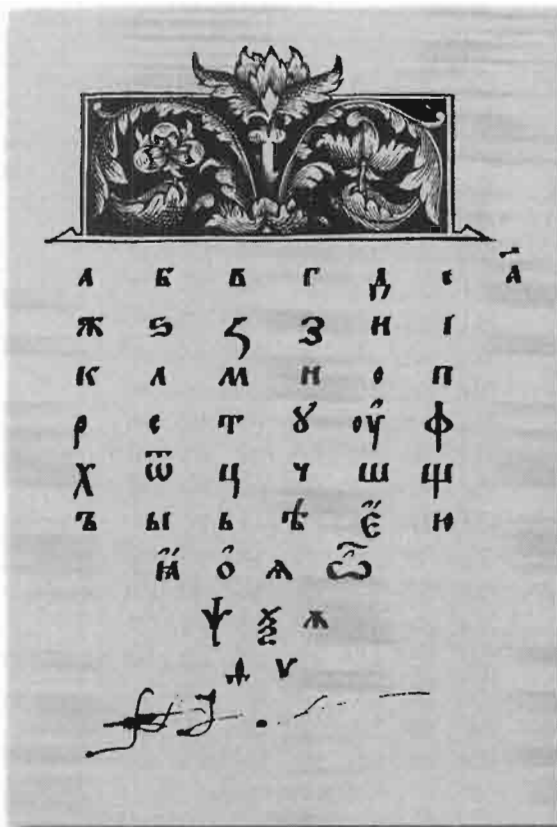 а б в г д є а҃
ж ѕ ꙁ з и і
к л м н о п
р с т ꙋ оу̑ ф
х ѿ ц ч ш щ
ъ ы ь ѣ є̎ ю
ꙗ̎ о̑ ѧ ѽ
ѱ ѯ ѫ
ѳ ѵ